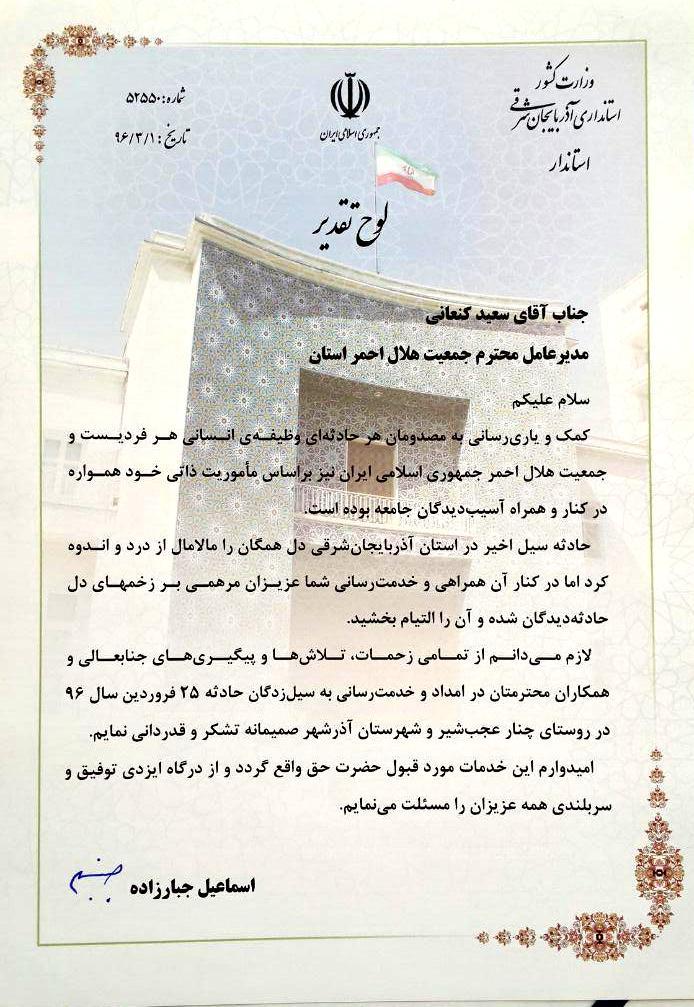 وزارت کشور
استانداری آذربایجان شرقی
استاندار
جمهوری اسلامی ایران
شماره: ۵۲۵۵۰
تاریخ: ۹۶/۳/۱
لوح تقدیر
جناب آقای سعید کنعانی
مدیرعامل محترم جمعیت هلال احمر استان
سلام علیکم
کمک و یاری‌رسانی به مصدومان هر حادثه‌ای وظیفه‌ی انسانی هر فردیست و
جمعیت هلال احمر جمهوری اسلامی ایران نیز براساس مأموریت ذاتی خود همواره
در کنار و همراه آسیب‌دیدگان جامعه بوده است.
حادثه سیل اخیر در استان آذربایجان‌شرقی دل همگان را مالامال از درد و اندوه
کرد اما در کنار آن همراهی و خدمت‌رسانی شما عزیزان مرهمی بر زخمهای دل
حادثه‌دیدگان شده و آن را التیام بخشید.
لازم می‌دانم از تمامی زحمات، تلاش‌ها و پیگیری‌های جنابعالی و
همکاران محترمتان در امداد و خدمت‌رسانی به سیل‌زدگان حادثه ۲۵ فروردین سال ۹۶
در روستای چنار عجب‌شیر و شهرستان آذرشهر صمیمانه تشکر و قدردانی نمایم.
امیدوارم این خدمات مورد قبول حضرت حق واقع گردد و از درگاه ایزدی توفیق و
سربلندی همه عزیزان را مسئلت می‌نمایم.
اسماعیل جبارزاده